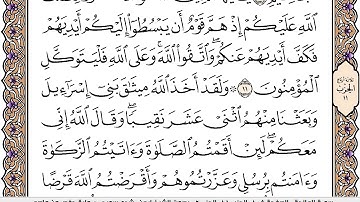 اللَّهِ عَلَيْكُمْ إِذْ هَمَّ قَوْمٌ أَن يَبْسُطُوٓا۟ إِلَيْكُمْ أَيْدِيَهُمْ
فَكَفَّ أَيْدِيَهُمْ عَنكُمْ ۖ وَٱتَّقُوا۟ ٱللَّهَ ۚ وَعَلَى ٱللَّهِ فَلْيَتَوَكَّلِ
ٱلْمُؤْمِنُونَ ١١ ۞ وَلَقَدْ أَخَذَ ٱللَّهُ مِيثَـٰقَ بَنِىٓ إِسْرَٰٓءِيلَ
وَبَعَثْنَا مِنْهُمُ ٱثْنَىْ عَشَرَ نَقِيبًا ۖ وَقَالَ ٱللَّهُ إِنِّى
مَعَكُمْ ۖ لَئِنْ أَقَمْتُمُ ٱلصَّلَوٰةَ وَءَاتَيْتُمُ ٱلزَّكَوٰةَ
وَءَامَنتُم بِرُسُلِى وَعَزَّرْتُمُوهُمْ وَأَقْرَضْتُمُ ٱللَّهَ قَرْضًا